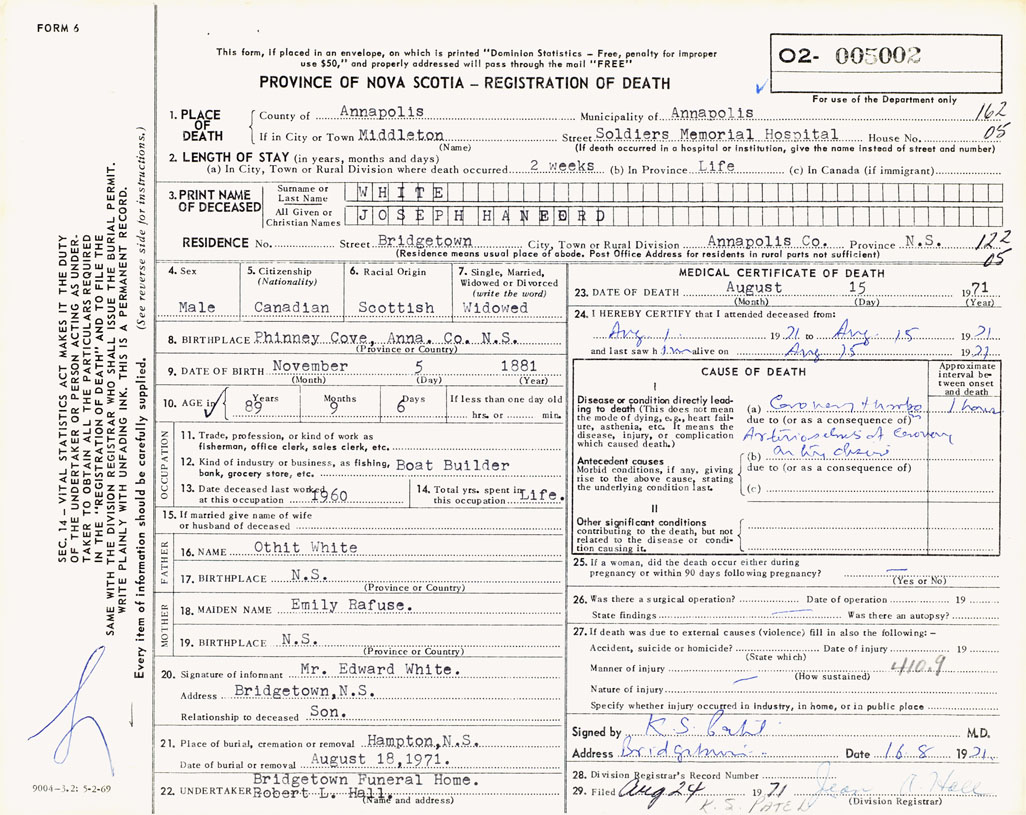 FORM 6
This form, if placed in an envelope, on which is printed "Dominion Statistics – Free, penalty for improper
use $50," and properly addressed will pass through the mail "FREE"
PROVINCE OF NOVA SCOTIA – REGISTRATION OF DEATH
O2- 005002
For use of the Department only
1. PLACE OF DEATH
County of Annapolis Municipality of Annapolis 162
If in City or Town Middleton Street Soldiers Memorial Hospital House No. 05
(Name) (If death occurred in a hospital or institution, give the name instead of street and number)
2. LENGTH OF STAY (in years, months and days)
(a) In City, Town or Rural Division where death occurred 2 weeks (b) In Province Life (c) In Canada (if immigrant)
3. PRINT NAME OF DECEASED
Surname or Last Name WHITE
All Given or Christian Names JOSEPH HANFORD
RESIDENCE No. Street Bridgetown City, Town or Rural Division Annapolis Co. Province N.S. 122
(Residence means usual place of abode. Post Office Address for residents in rural parts not sufficient) 05
4. Sex
Male
5. Citizenship
(Nationality)
Canadian
6. Racial Origin
Scottish
7. Single, Married,
Widowed or Divorced
(write the word)
Widowed
8. BIRTHPLACE Phinney Cove, Anna. Co. N.S.
(Province or Country)
9. DATE OF BIRTH November 5 1881
(Month) (Day) (Year)
10. AGE in Years Months Days If less than one day old
89 9 6 hrs. or min.
OCCUPATION
11. Trade, profession, or kind of work as
fisherman, office clerk, sales clerk, etc.
12. Kind of industry or business, as fishing, Boat Builder
bank, grocery store, etc.
13. Date deceased last worked
at this occupation 1960
14. Total yrs. spent in
this occupation Life.
15. If married give name of wife
or husband of deceased
FATHER
16. NAME Othit White
17. BIRTHPLACE N.S.
(Province or Country)
MOTHER
18. MAIDEN NAME Emily Rafuse.
19. BIRTHPLACE N.S.
(Province or Country)
20. Signature of informant Mr. Edward White.
Address Bridgetown, N.S.
Relationship to deceased Son.
21. Place of burial, cremation or removal Hampton, N.S.
Date of burial or removal August 18, 1971.
Bridgetown Funeral Home.
22. UNDERTAKER Robert L. Hall.
(Name and address)
MEDICAL CERTIFICATE OF DEATH
23. DATE OF DEATH August 15 1971
(Month) (Day) (Year)
24. I HEREBY CERTIFY that I attended deceased from:
Aug 1. 1971 to Aug. 15 1971
and last saw him alive on Aug 15 1971
CAUSE OF DEATH
Approximate
interval be-
tween onset
and death
I
Disease or condition directly lead-
ing to death (This does not mean
the mode of dying, e.g., heart fail-
ure, asthenia, etc. It means the
disease, injury, or complication
which caused death.)
(a) Coronary 1 hour
due to (or as a consequence of)
Coronary
Antecedent causes
Morbid conditions, if any, giving
rise to the above cause, stating
the underlying condition last.
(b)
due to (or as a consequence of)
(c)
II
Other significant conditions
contributing to the death, but not
related to the disease or condi-
tion causing it.
25. If a woman, did the death occur either during
pregnancy or within 90 days following pregnancy?
(Yes or No)
26. Was there a surgical operation? Date of operation 19
State findings Was there an autopsy?
27. If death was due to external causes (violence) fill in also the following: –
Accident, suicide or homicide? Date of injury 19
(State which)
Manner of injury 410.9
(How sustained)
Nature of injury
Specify whether injury occurred in industry, in home, or in public place
Signed by K.S. Patel M.D.
Address Bridgetown Date 16-8 1971
28. Division Registrar's Record Number
29. Filed Aug 24 1971 Jean A Hall
K. S. PATEL (Division Registrar)
SEC. 14 – VITAL STATISTICS ACT MAKES IT THE DUTY
OF THE UNDERTAKER OR PERSON ACTING AS UNDER-
TAKER TO OBTAIN ALL THE PARTICULARS REQUIRED
IN THE "REGISTRATION OF DEATH" AND TO FILE THE
SAME WITH THE DIVISION REGISTRAR WHO SHALL ISSUE THE BURIAL PERMIT.
WRITE PLAINLY WITH UNFADING INK. THIS IS A PERMANENT RECORD.
Every item of information should be carefully supplied. (See reverse side for instructions.)
9004-3.2: 5-2-69